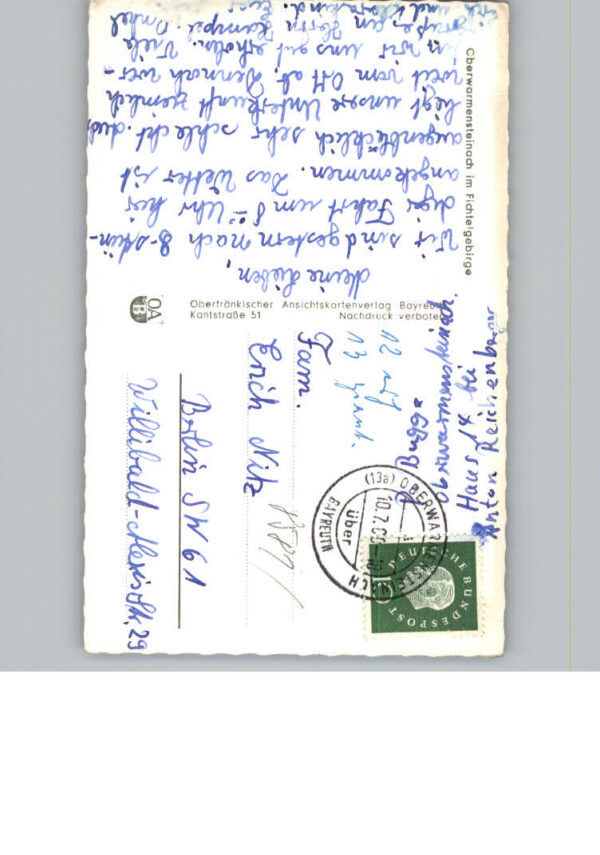 Oberwarmensteinach im Fichtelgebirge
Meine Lieben,
Wir sind gestern nach 8-stün-
diger Fahrt um 8 Uhr hier
angekommen. Das Wetter ist
augenblicklich sehr schlecht. Auch
liegt unsere Unterkunft ziemlich
weit vom Ort ab. Dennoch wer-
den wir uns gut erholen. Viele
Grüße an Herrn Kampe. Onkel
und
OA
Oberfränkischer Ansichtskartenverlag Bayreuth
Kantstraße 51 Nachdruck verboten
Oberwarmensteinach
Haus 14 bei
Anton Reichenberger
12
13
Fam.
Erich Nitz
Berlin SW 61
Willibald-Alexis Str. 29
(13a) OBERWARMENSTEINACH
10.7.
über
BAYREUTH
DEUTSCHE BUNDESPOST
10